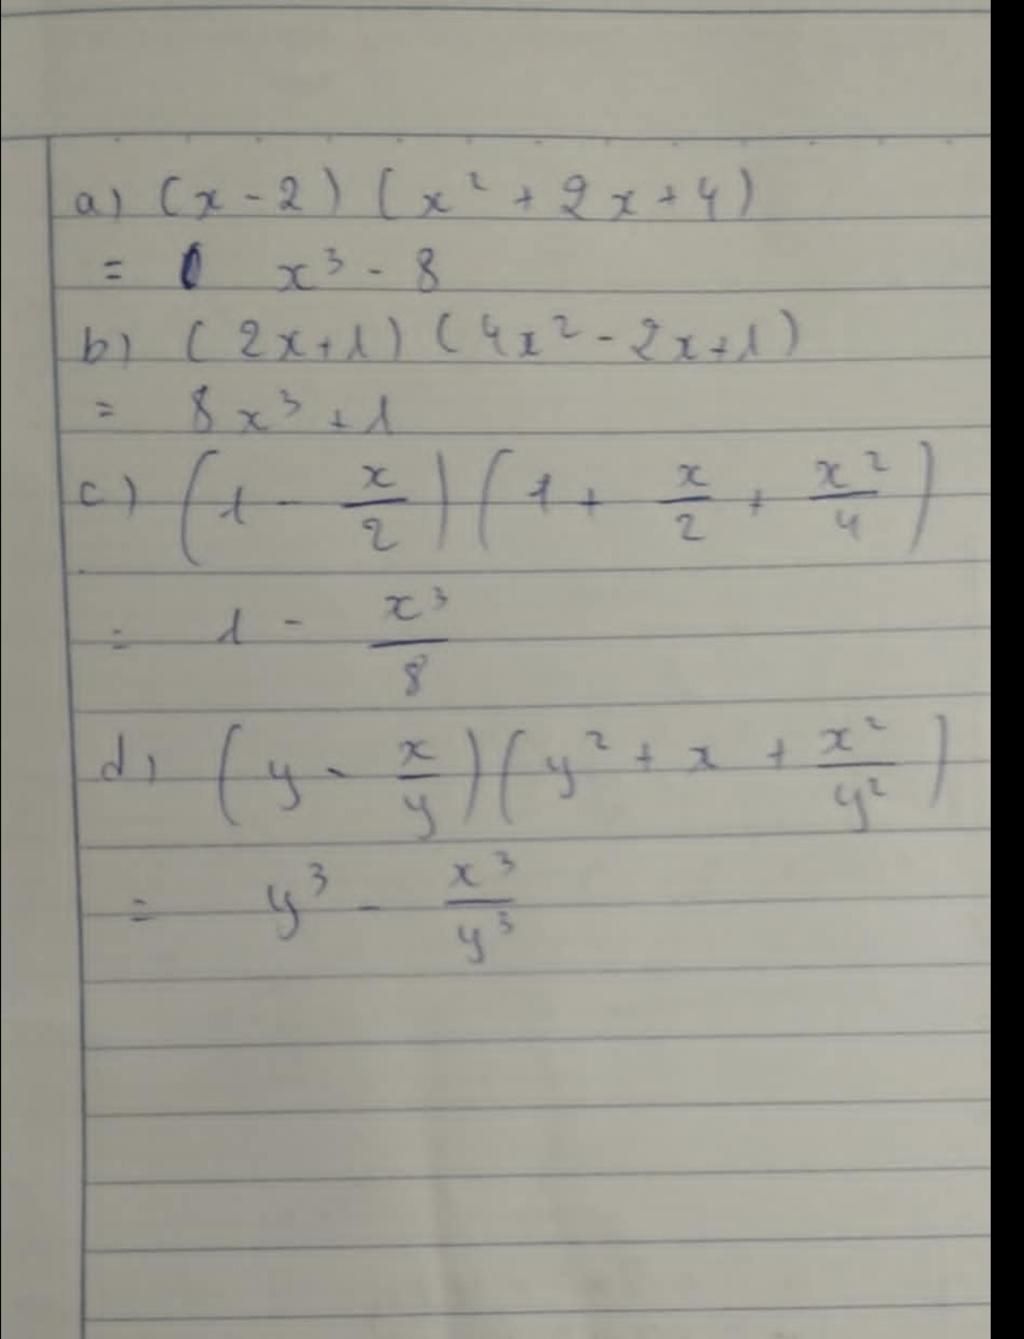 a) (x - 2) (x² + 2x + 4)
= x³ - 8
b) (2x + 1) (4x² - 2x + 1)
= 8x³ + 1
c) (1 - x/2) (1 + x/2 + x²/4)
= 1 - x³/8
d) (y - x/y) (y² + x + x²/y²)
= y³ - x³/y³